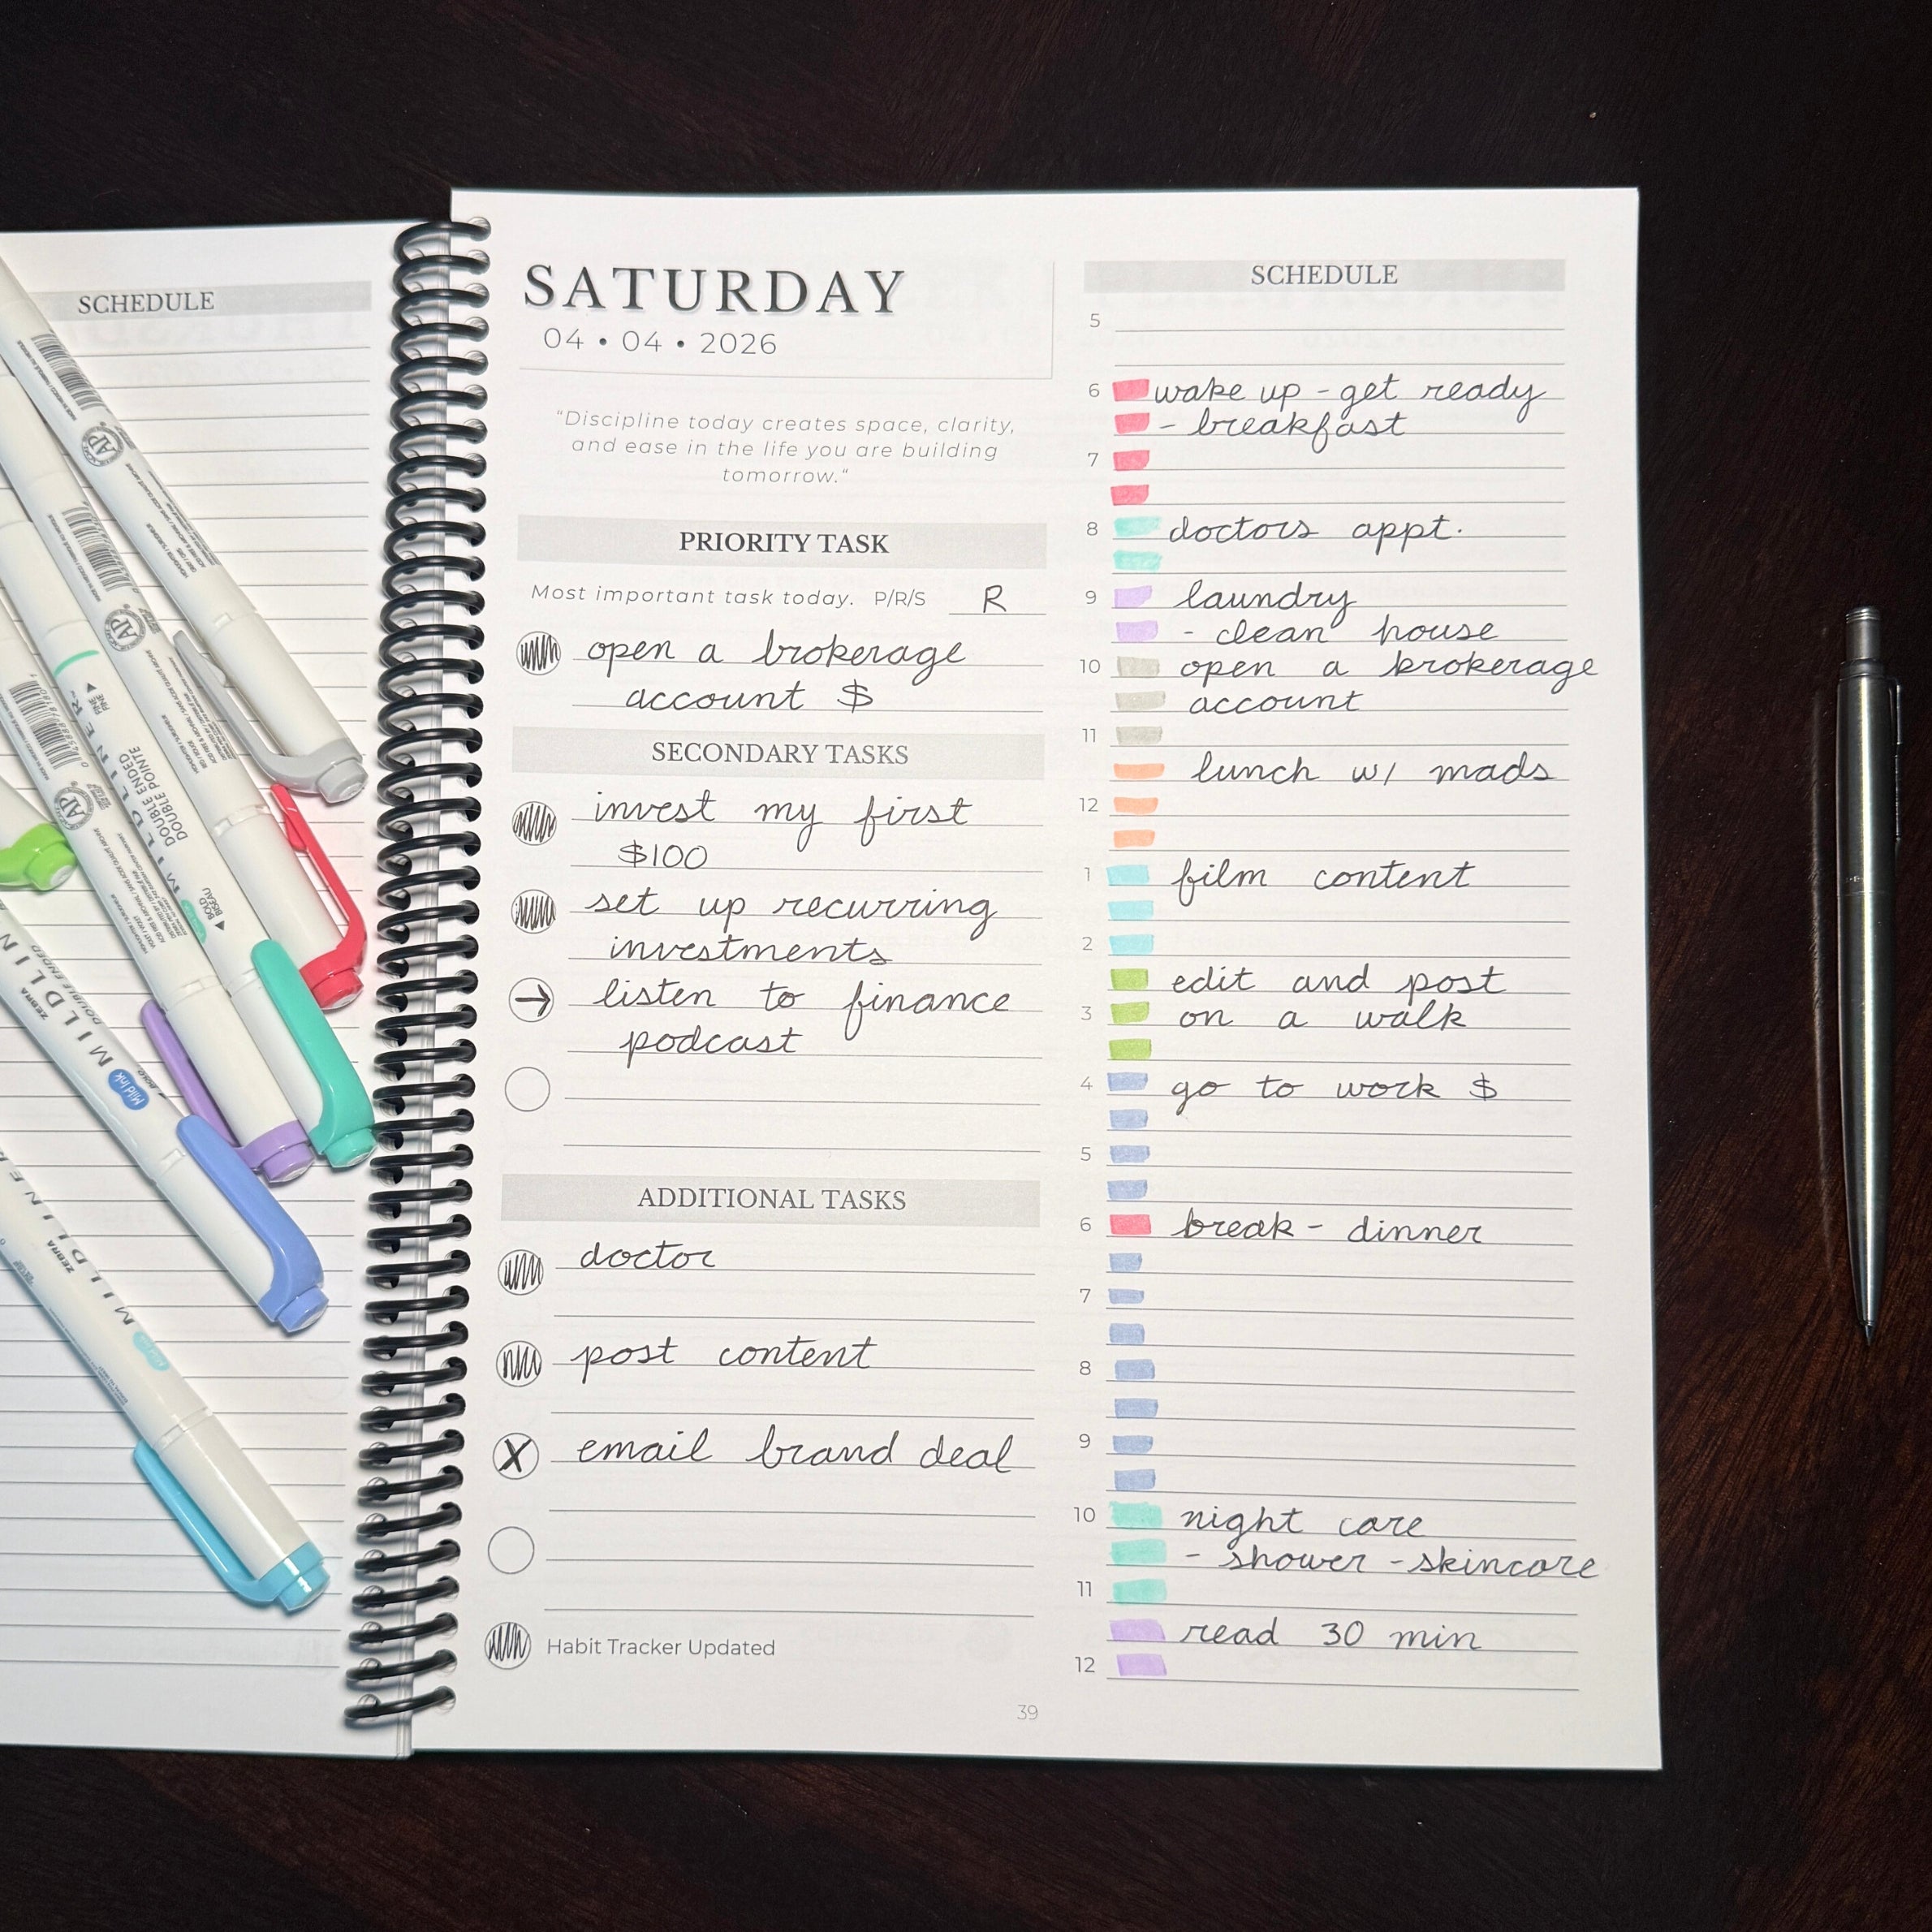 SCHEDULE
SATURDAY
04 • 04 • 2026
"Discipline today creates space, clarity,
and ease in the life you are building
tomorrow."
PRIORITY TASK
Most important task today. P/R/S R
open a brokerage
account $
SECONDARY TASKS
invest my first
$100
set up recurring
investments
→ listen to finance
podcast
ADDITIONAL TASKS
doctor
post content
X email brand deal
Habit Tracker Updated
39
SCHEDULE
5
6 wake up - get ready
- breakfast
7
8 doctors appt.
9 laundry
- clean house
10 open a brokerage
account
11
lunch w/ mads
12
1 film content
2
edit and post
3 on a walk
4 go to work $
5
6 break - dinner
7
8
9
10 night care
- shower - skincare
11
read 30 min
12
AP
AP
AP
FINE
MILDLINER
DOUBLE ENDED
DOUBLE POINTE
BOLD
BISEAU
ZEBRA
MILDLIN
DOUBLE ENDED
Mild Ink
ZEBRA
MILDLINE